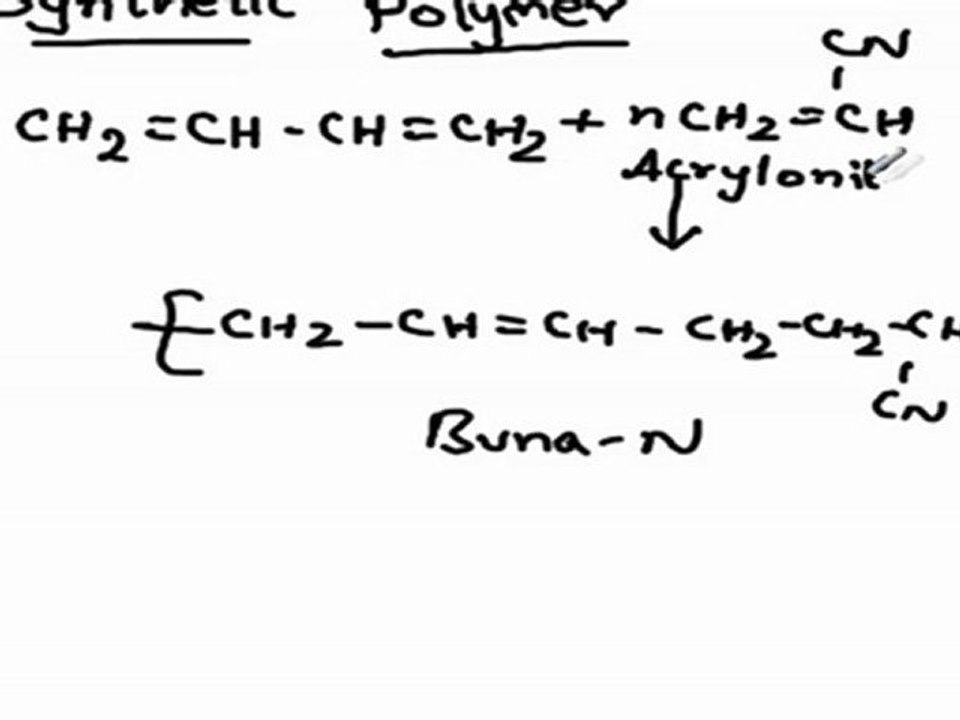 Synthetic Polymer
CN
CH2=CH-CH=CH2+ nCH2=CH
Acrylonit
CH2-CH=CH-CH2-CH2-CH
CN
Buna-N